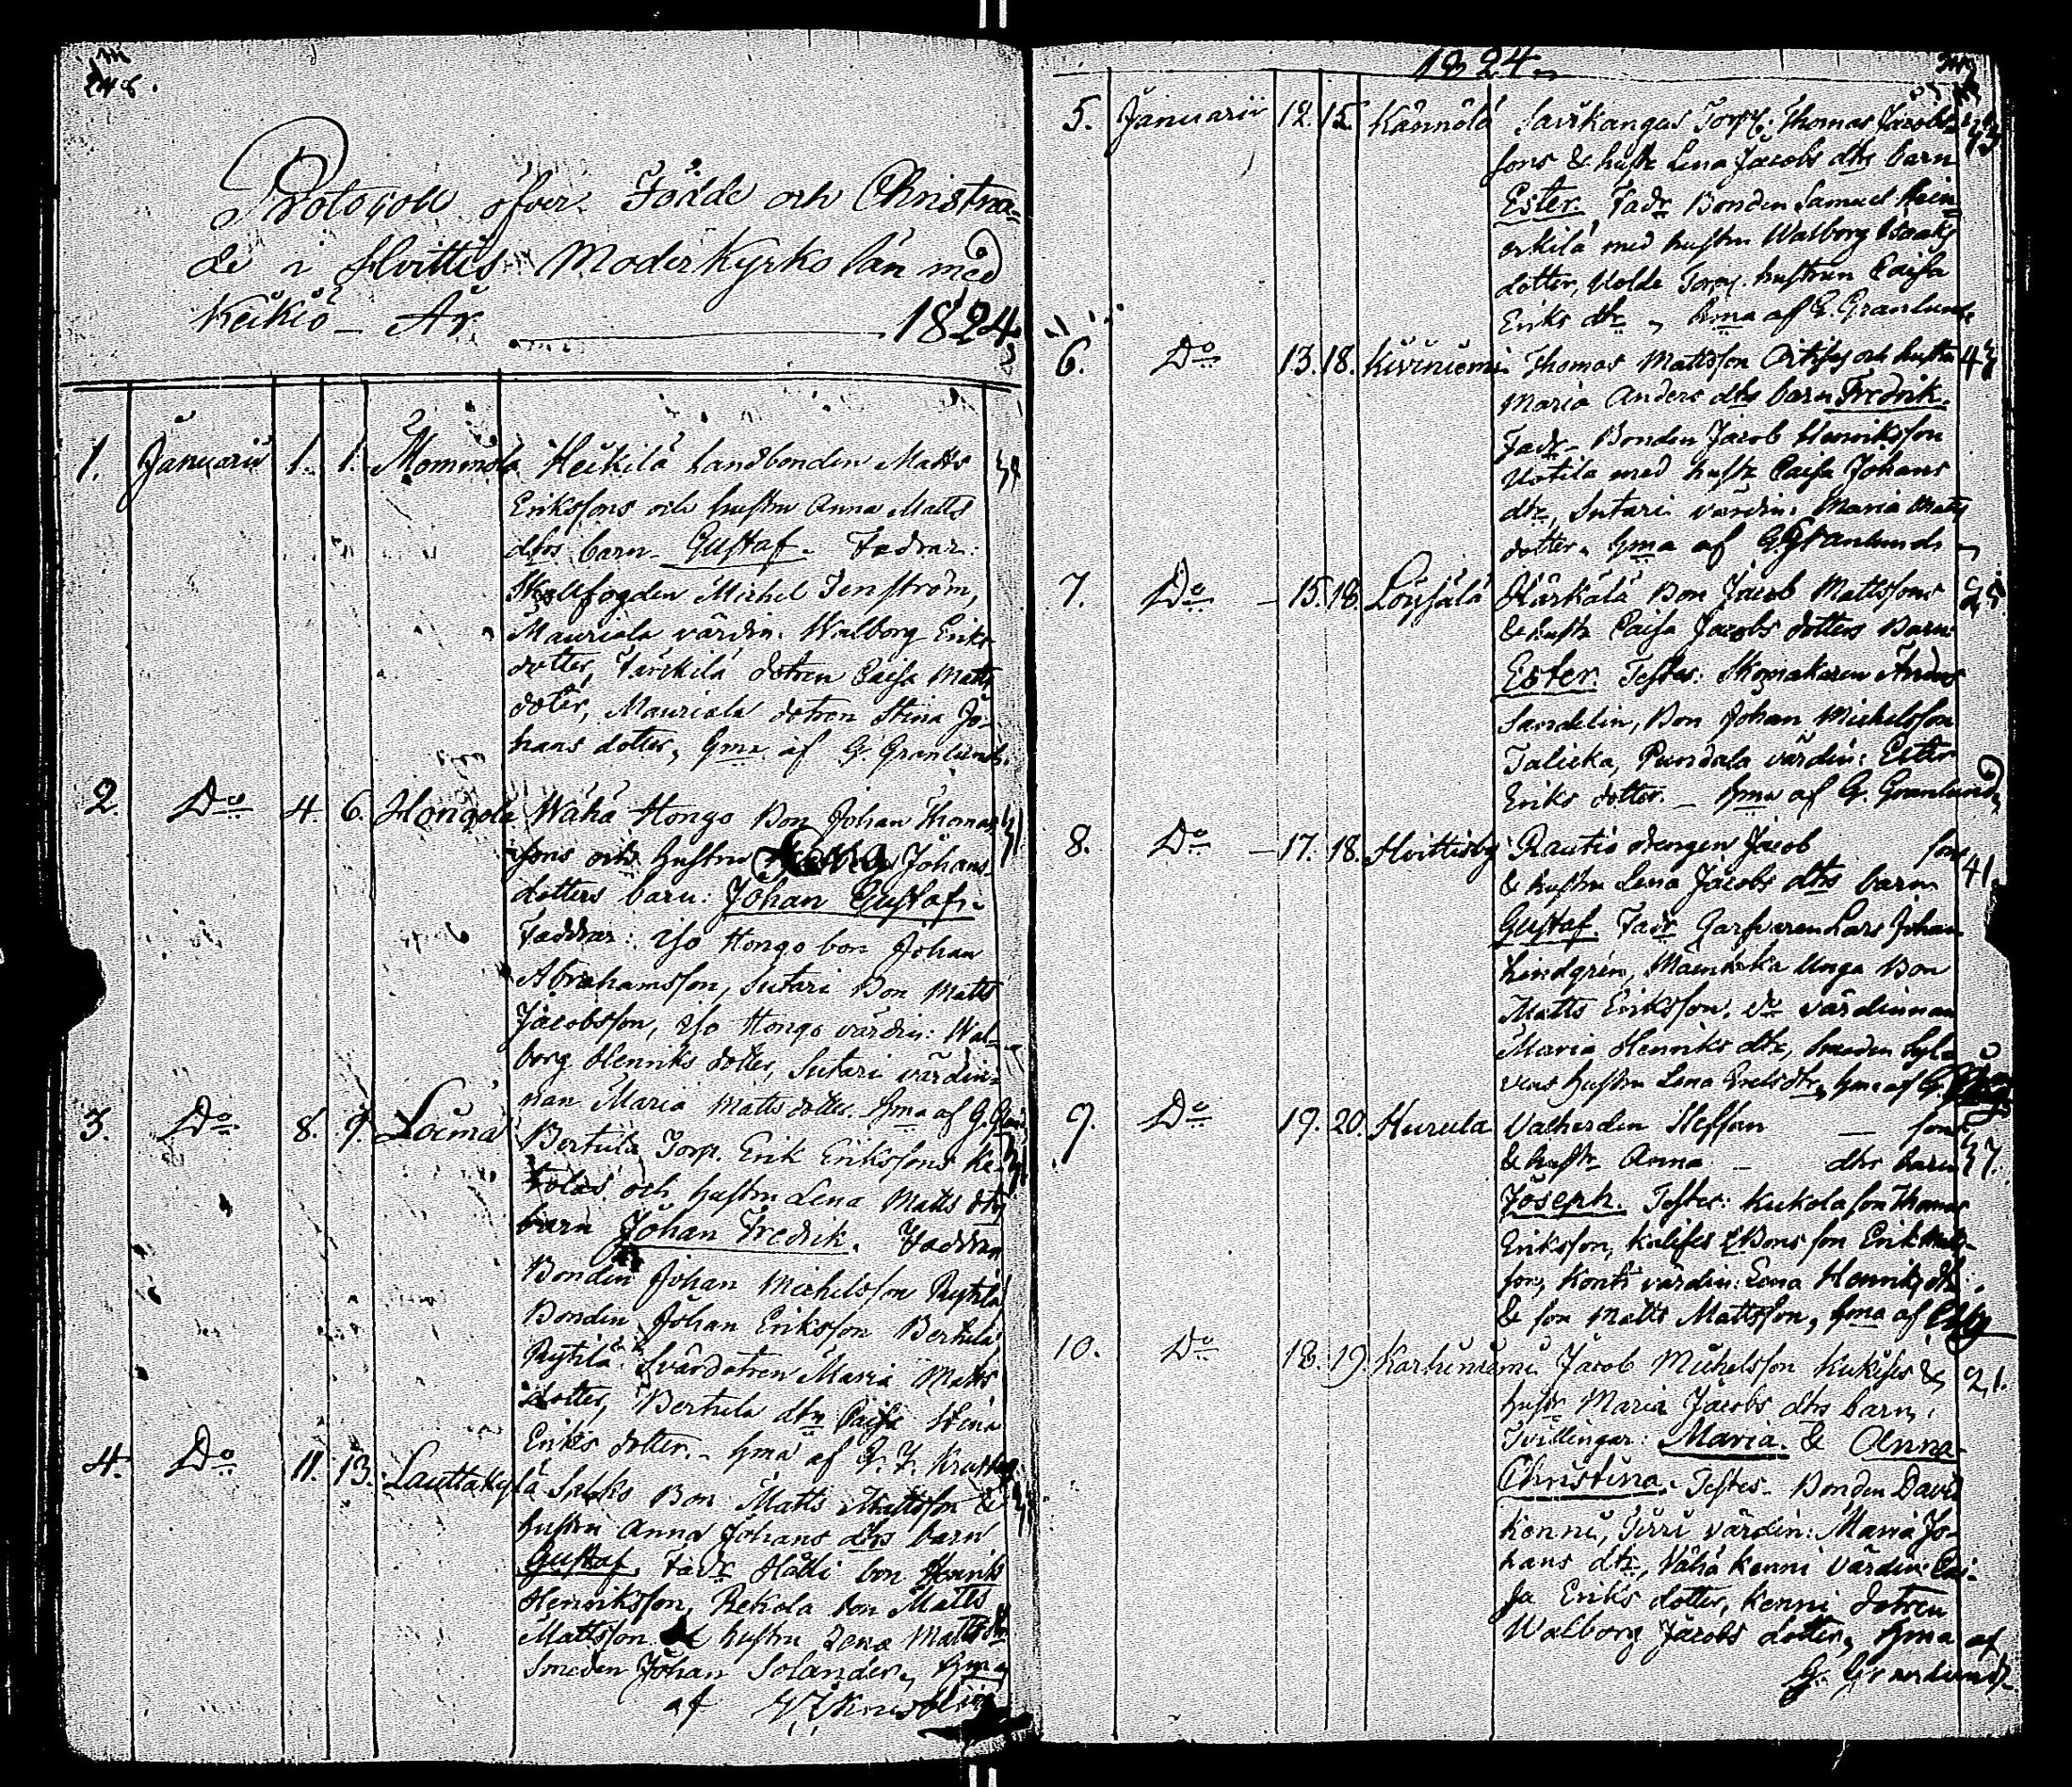 246.
Protocoll öfver Födde och Christna-
de i Hvittis Moderkyrko län med
Keikiö - År 1824.
1. Januarii 1. 1. Mommola Heikilä Landbonden Matts
Erikssons och hustru Anna Matts
dtrs barn - Gustaf. Faddrar:
Skallfogden Michel Tenström,
Mauriala värdin. Walborg Eriks
dotter, Tärckilä dotren Caisa Matts
doter, Mauriala dotren Stina Jo-
hans dotter, hma af G. Granlund.
2. Do 4. 6. Hongola Wähä Hongo Bon Johan Thomas
sons och hustru Johans
dotters barn: Johan Gustaf.
Faddrar: Iso Hongo bon Johan
Abrahamsson, Sutari Bon Matts
Jacobsson, Iso Hongo värdin: Wal-
borg Henriks dotter, Sutari värdin-
nan Maria Matts dotter. hma af G.
3. Do 8. 9. Loima Bertula Torp. Erik Erikssons
och hustru Lena Matts dtrs
barn Johan Fredrik. Faddrar
Bonden Johan Michelsson Rytilä,
Bonden Johan Eriksson Bertula,
Rytilä Svärdotren Maria Matts
dotter, Bertula dtrn Caisa Stina
Eriks dotter. - hma af
4. Do 11. 13. Lauttakylä Bon Matts Mattsson &
hustru Anna Johans dtrs barn
Gustaf. Fadr Hålli bon Henrik
Henriksson, Rekola bon Matts
Mattsson & hustru Lena Matts dtr
Smeden Johan Solander, hma
af
1824.
5. Januarii 12. 15. Kännölä Sarkangas Torp. Thomas Jacobs-
sons & hustr Lena Jacobs dtrs barn
Ester. Fadr Bonden Samuel Hein-
orkilä med hustru Walborg Isaaks
dotter, Uolde Torp. hustrun Caisa
Eriks dtr, hma af G. Granlund.
6. Do 13. 18. Kiviniemi Thomas Mattsson och hustru 43
Maria Anders dtrs barn Fredrik.
Fadr - Bonden Jacob Henriksson
Uotila med hustr Caisa Johans
dtr, Sutari värdin: Maria Matts
dotter. hma af G. Granlund.
7. Do 15. 18. Löysälä Härkälä Bon Jacob Mattssons 25
& hustr Caisa Jacobs dotters Barn
Ester. Testes: Skomakaren Anders
Sandelin, Bon Johan Michelsson
Talicka, Pundala värdin: Ester
Eriks dotter. - hma af G. Granlund
8. Do 17. 18. Hvittisby Rautio drengen Jacob sons 41.
& hustru Lena Jacobs dtrs barn
Gustaf. Fadr Garfvaren Lars Johan
Lindgren, Unga Bon
Matts Eriksson, do värdinnan
Maria Henriks dtr,
hustru Lena dtr, hma af G.
9. Do 19. 20. Hurula Valherden Steffan - sons 37.
& hustr Anna - dtrs barn
Joseph. Testes: Kukola son Thomas
Eriksson, Bons son Erik Matts-
son, Konti värdin: Lena Henriks dtr
& son Matts Mattsson, hma af
10. Do 18. 19. Karhiniemi Jacob Michelsson & 21.
hustr Maria Jacobs dtrs barn,
Tvillingar: Maria. & Anna
Christina. Testes - Bonden David
Kenni, värdin: Maria Jo-
hans dtr, Vähä Kenni värdin: Cai-
sa Eriks dotter, Kenni dotren
Walborg Jacobs dotter, hma af
G. Granlund.